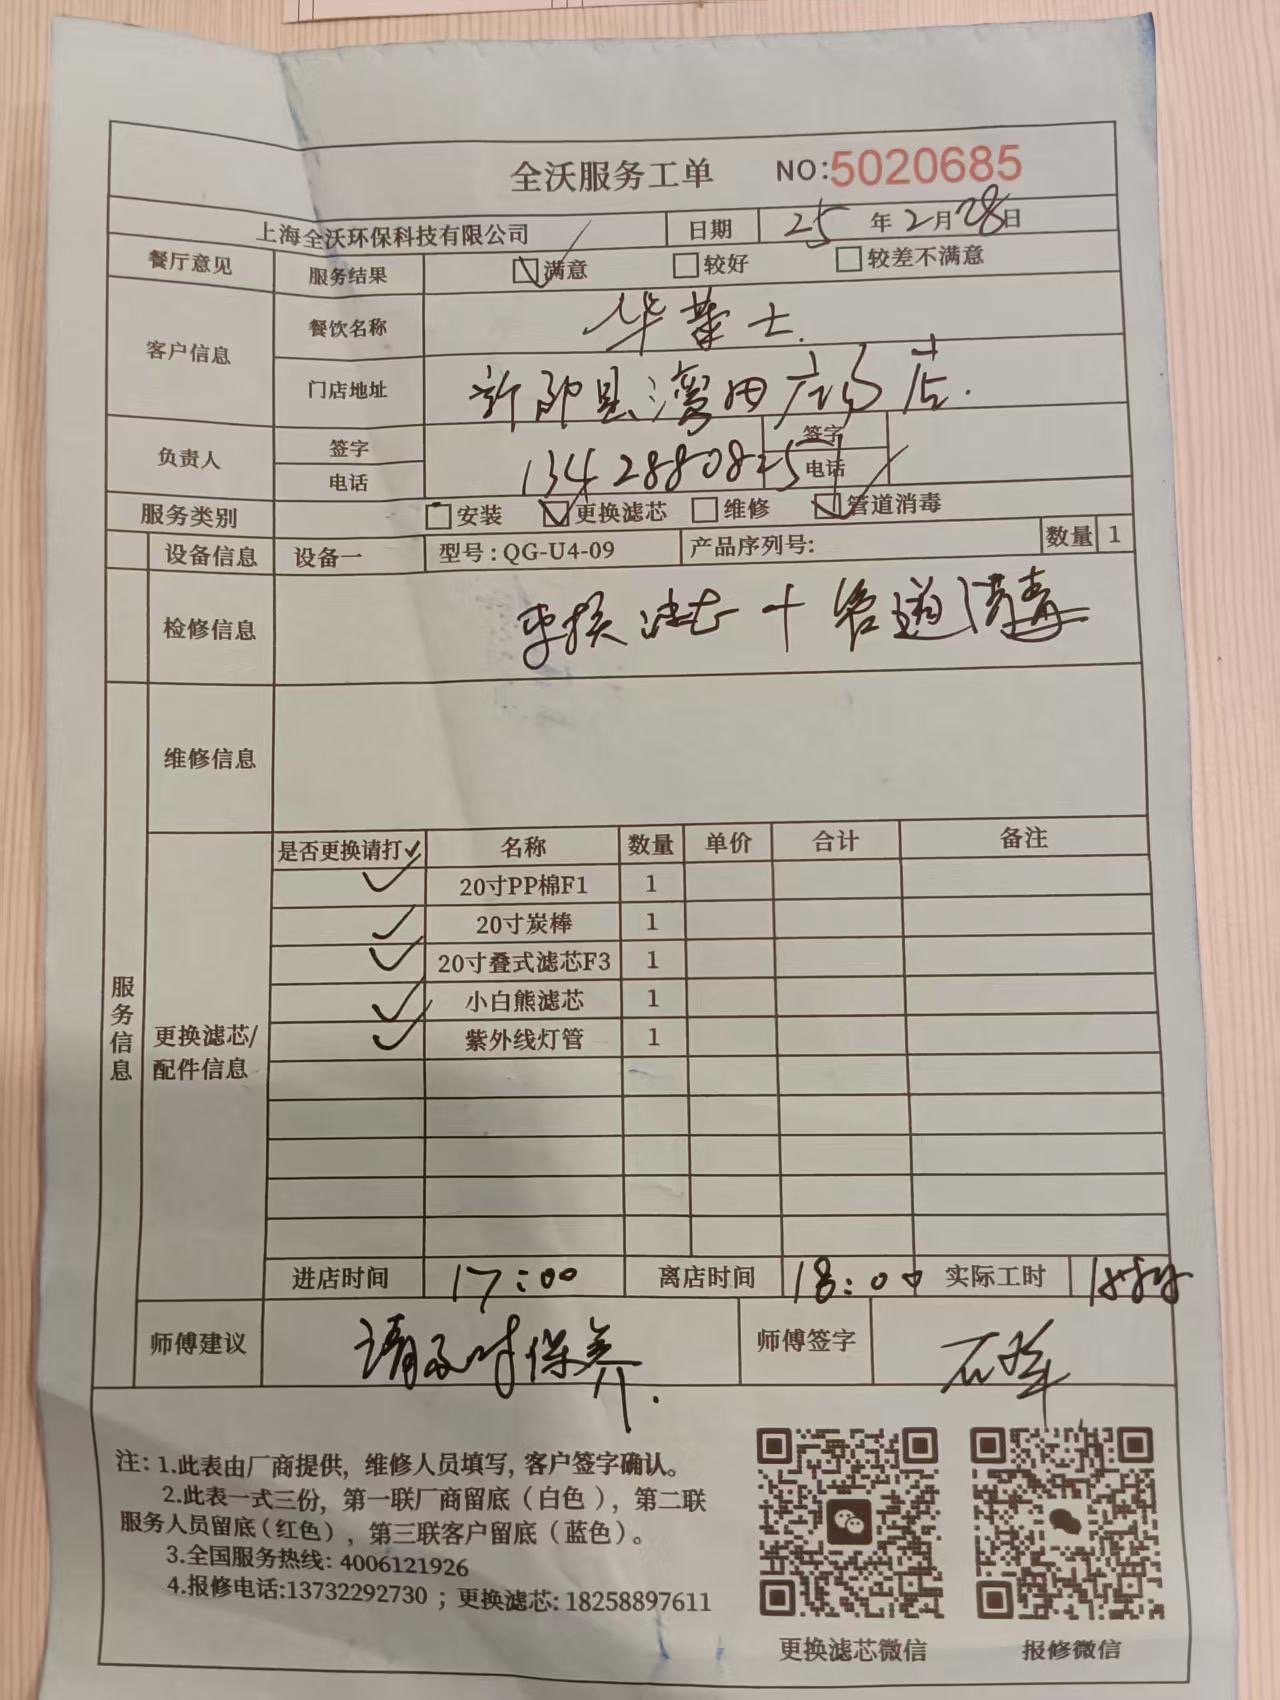 全沃服务工单 NO:5020685
上海全沃环保科技有限公司 日期 25年2月28日
餐厅意见 服务结果 满意 较好 较差不满意
客户信息 餐饮名称 华莱士.
门店地址 新邵县湾田广场店.
负责人 签字 签字
电话 13428808251 电话
服务类别 安装 更换滤芯 维修 管道消毒
设备信息 设备一 型号:QG-U4-09 产品序列号: 数量 1
检修信息 更换滤芯+管道消毒
维修信息
是否更换请打✓ 名称 数量 单价 合计 备注
✓ 20寸PP棉F1 1
✓ 20寸炭棒 1
✓ 20寸叠式滤芯F3 1
✓ 小白熊滤芯 1
✓ 紫外线灯管 1
服务信息
更换滤芯/
配件信息
进店时间 17:00 离店时间 18:00 实际工时
师傅建议 请及时保养. 师傅签字
注:1.此表由厂商提供,维修人员填写,客户签字确认。
2.此表一式三份,第一联厂商留底(白色),第二联
服务人员留底(红色),第三联客户留底(蓝色)。
3.全国服务热线:4006121926
4.报修电话:13732292730;更换滤芯:18258897611
更换滤芯微信 报修微信